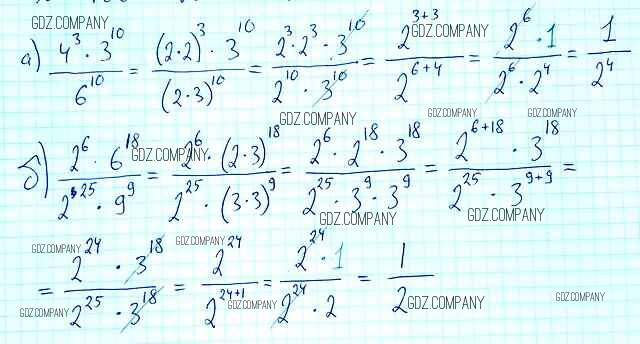 GDZ.COMPANY
а) 4³ · 3¹⁰ / 6¹⁰ = (2·2)³ · 3¹⁰ / (2·3)¹⁰ = 2³ · 2³ · 3¹⁰ / 2¹⁰ · 3¹⁰ = 2³⁺³ / 2⁶⁺⁴ = 2⁶ · 1 / 2⁶ · 2⁴ = 1 / 2⁴
GDZ.COMPANY
GDZ.COMPANY GDZ.COMPANY GDZ.COMPANY
б) 2⁶ · 6¹⁸ / 2²⁵ · 9⁹ = 2⁶ · (2·3)¹⁸ / 2²⁵ · (3·3)⁹ = 2⁶ · 2¹⁸ · 3¹⁸ / 2²⁵ · 3⁹ · 3⁹ = 2⁶⁺¹⁸ · 3¹⁸ / 2²⁵ · 3⁹⁺⁹ =
GDZ.COMPANY
GDZ.COMPANY GDZ.COMPANY
GDZ.COMPANY GDZ.COMPANY
= 2²⁴ · 3¹⁸ / 2²⁵ · 3¹⁸ = 2²⁴ / 2²⁴⁺¹ = 2²⁴ · 1 / 2²⁴ · 2 = 1 / 2
GDZ.COMPANY GDZ.COMPANY GDZ.COMPANY GDZ.COMPANY